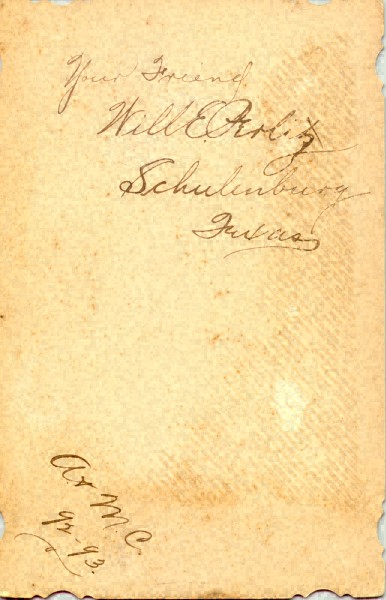 Your Friend
Will E. Perlitz
Schulenburg
Texas
A & M. C.
92-93.